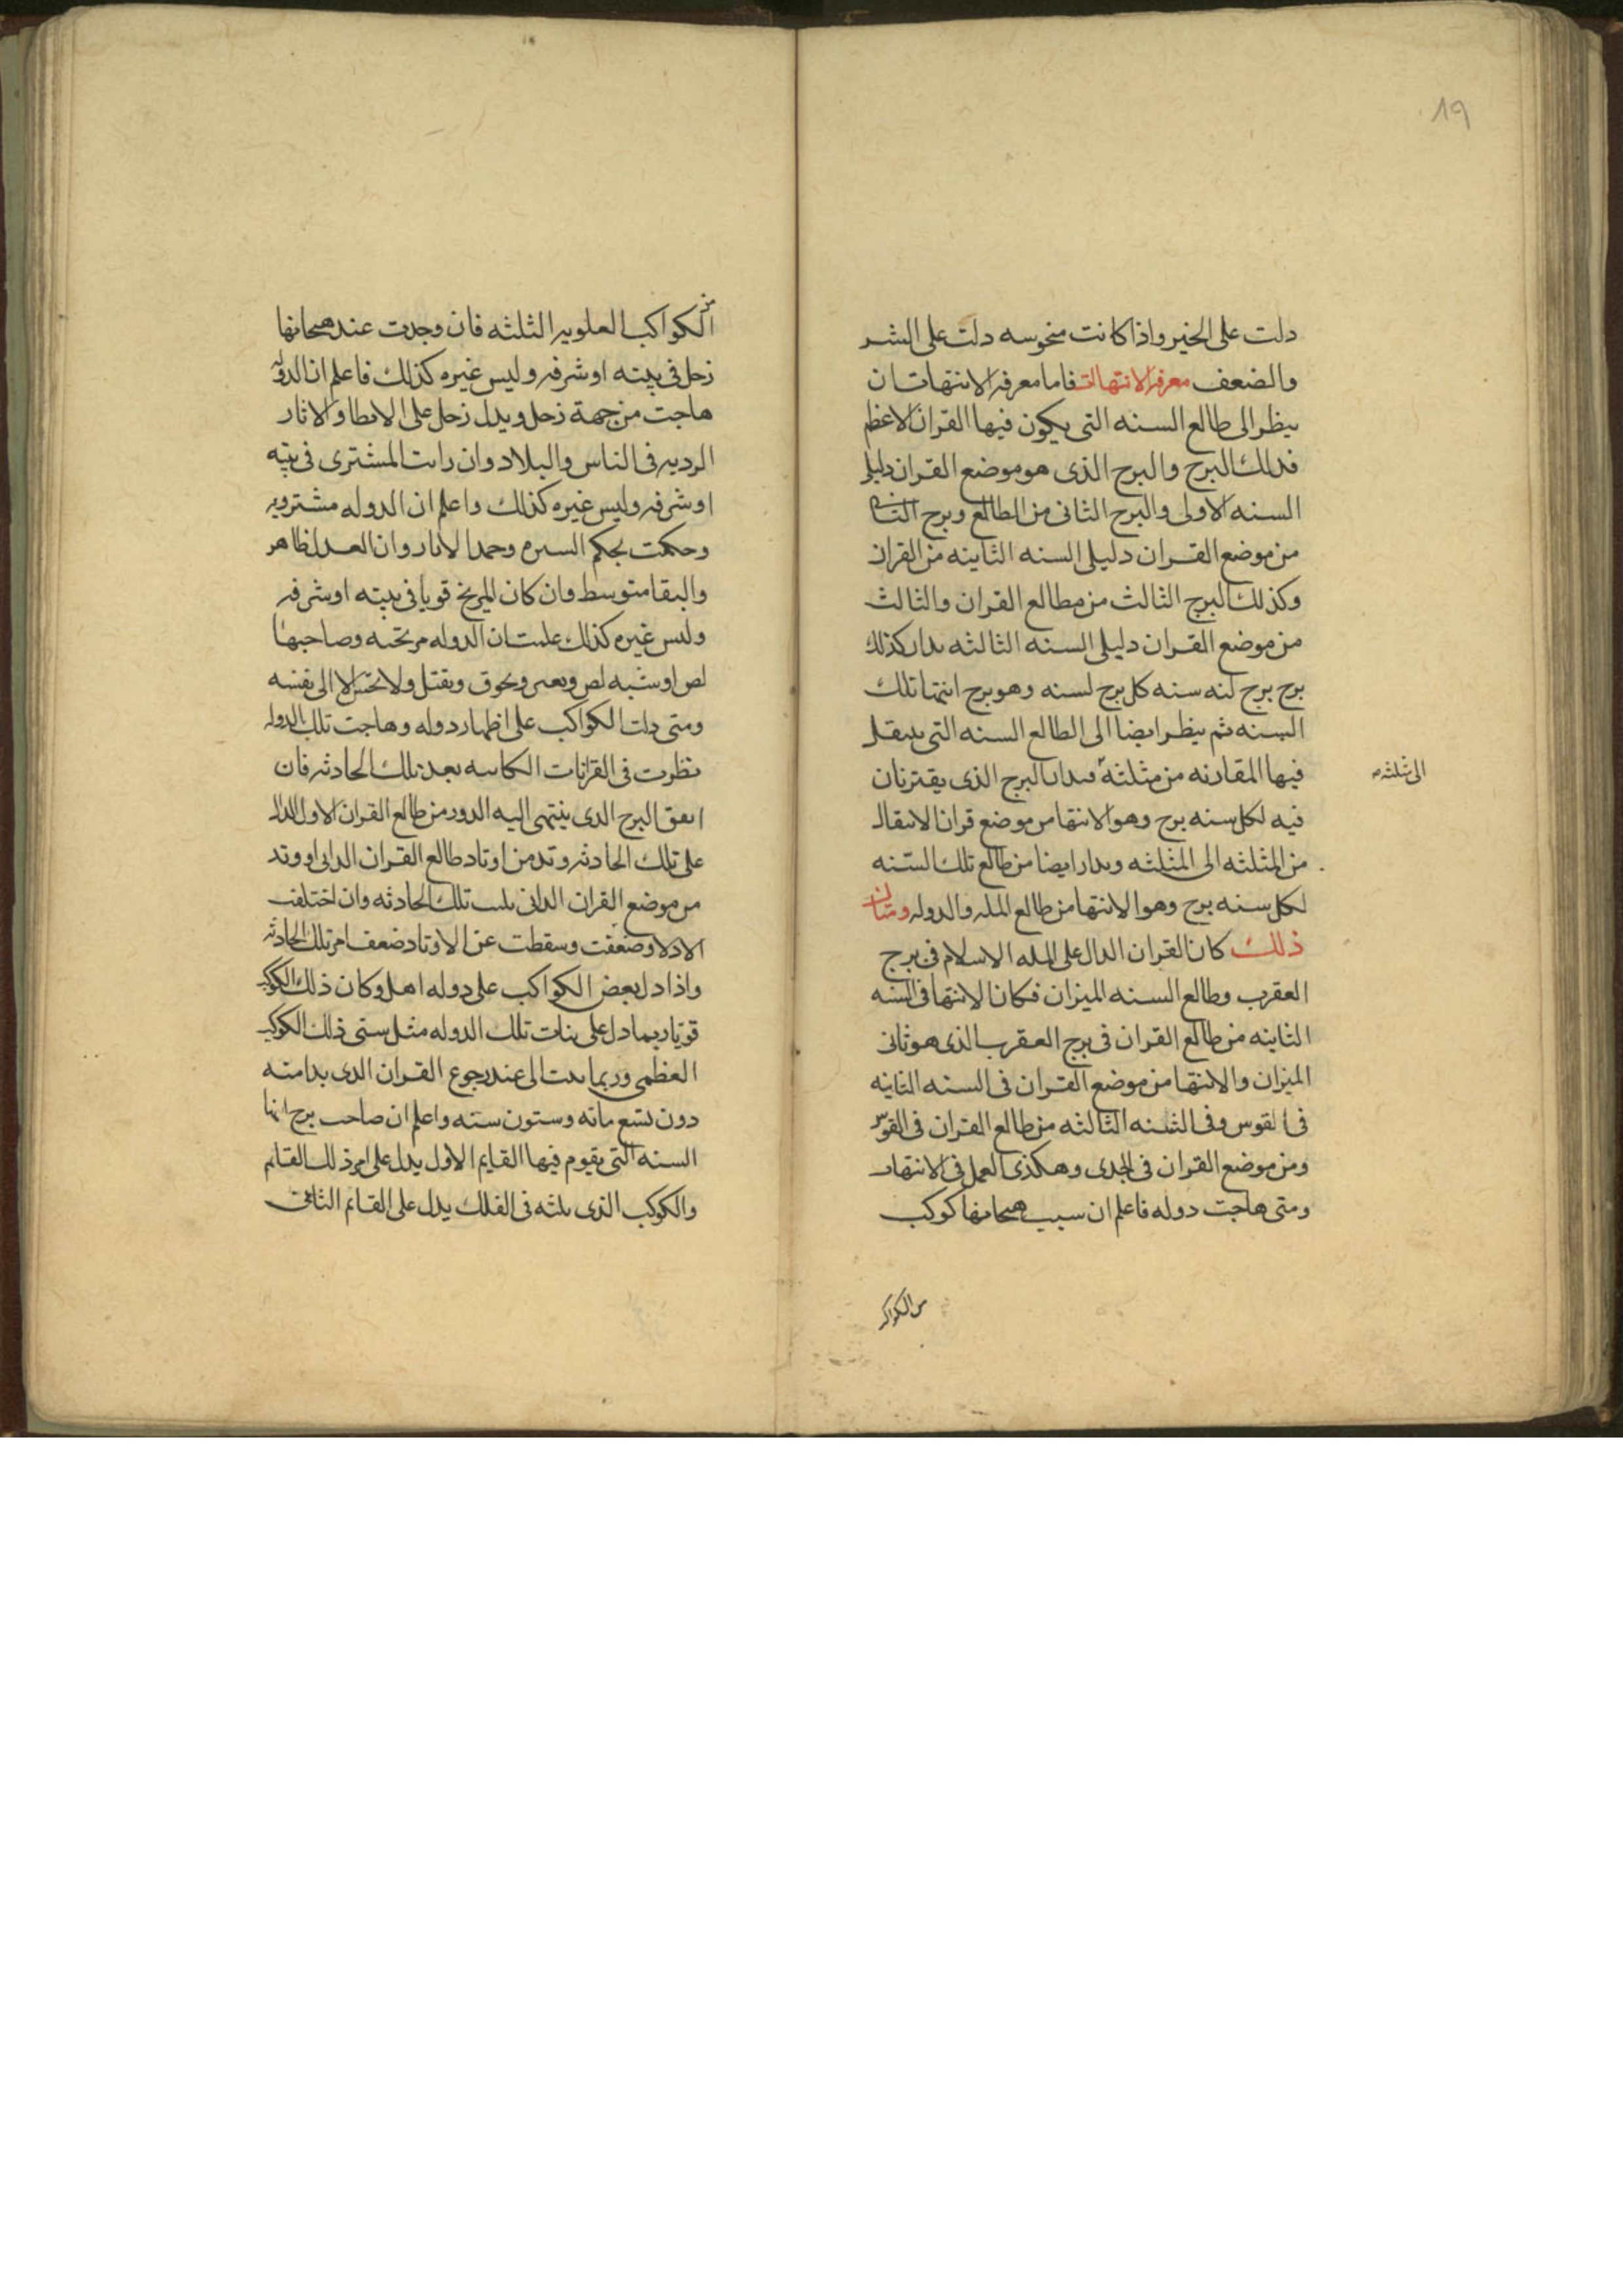 19
دلت على الخير واذا كانت منحوسه دلت على الشر
والضعف معرفة الانتهاات فاما معرفة الانتهاات ان
ينظر الى طالع السنه التى يكون فيها القران الاعظم
فذلك البرج والبرج الذى هو موضع القران دليلا
السنه الاولى والبرج الثانى من الطالع وبرج الثانى
من موضع القران دليلى السنه الثانيه من القران
وكذلك البرج الثالث من مطالع القران والثالث
من موضع القران دليلى السنه الثالثه يدار كذلك
برج برج لسنه سنه كل برج لسنه وهو برج انتها تلك
السنه ثم ينظر ايضا الى الطالع السنه التى ينتقل
فيها المقارنه من مثلثة فيدار البرج الذى يقترنان
الى مثلثه
فيه لكل سنه برج وهو الانتها من موضع قران الانتقال
من المثلثه الى المثلثه ويدار ايضا من طالع تلك السنه
لكل سنه برج وهو الانتها من طالع المله والدوله ومثال
ذلك كان القران الدال على المله الاسلام فى برج
العقرب وطالع السنه الميزان فكان الانتها فى السنه
الثانيه من طالع القران فى برج العقرب الذى هو ثانى
الميزان والانتها من موضع القران فى السنه الثانيه
فى القوس وفى السنه الثالثه من طالع القران فى القوس
ومن موضع القران فى الجدى وهكذى العمل فى الانتهاء
ومتى هاجت دوله فاعلم ان سبب هيجانها كوكب
من الكواكب
من
الكواكب العلويه الثلثه فان وجدت عند هيجانها
زحل فى بيته او شرفه وليس غيره كذلك فاعلم ان الدوله
هاجت من جهة زحل ويدل زحل على الابطا والاثار
الرديه فى الناس والبلاد وان رايت المشترى فى بيته
او شرفه وليس غيره كذلك واعلم ان الدوله مشترويه
وحكمت بحكم السيره وحمد الاثار وان العدل ظاهر
والبقا متوسط وان كان المريخ قويا فى بيته او شرفه
وليس غيره كذلك علمت ان الدوله مريخيه وصاحبها
لص او شبه لص ويحرق ويقتل ولا الا الى نفسه
ومتى دلت الكواكب على اظهار دوله وهاجت تلك الدوله
نظرت فى القرانات الكاينه بعد تلك الحادثه فان
اتفق البرج الذى ينتهى اليه الدور من طالع القران الاول الدال
على تلك الحادثه وتد من اوتاد طالع القران الثانى او وتد
من موضع القران الثانى ثبت تلك الحادثه وان اختلفت
الادلا وضعفت وسقطت عن الاوتاد ضعف امر تلك الحادثه
واذا دل بعض الكواكب على دوله اهل وكان ذلك الكوكب
قويا ربما دل على ثبات تلك الدوله مثل سنى ذلك الكوكب
العظمى وربما الى عند رجوع القران الذى بدا منه
دون تسع مائه وستون سنه واعلم ان صاحب برج انتها
السنه التى يقوم فيها القايم الاول يدل على امر ذلك القايم
والكوكب الذى يليه فى الفلك يدل على القائم الثانى